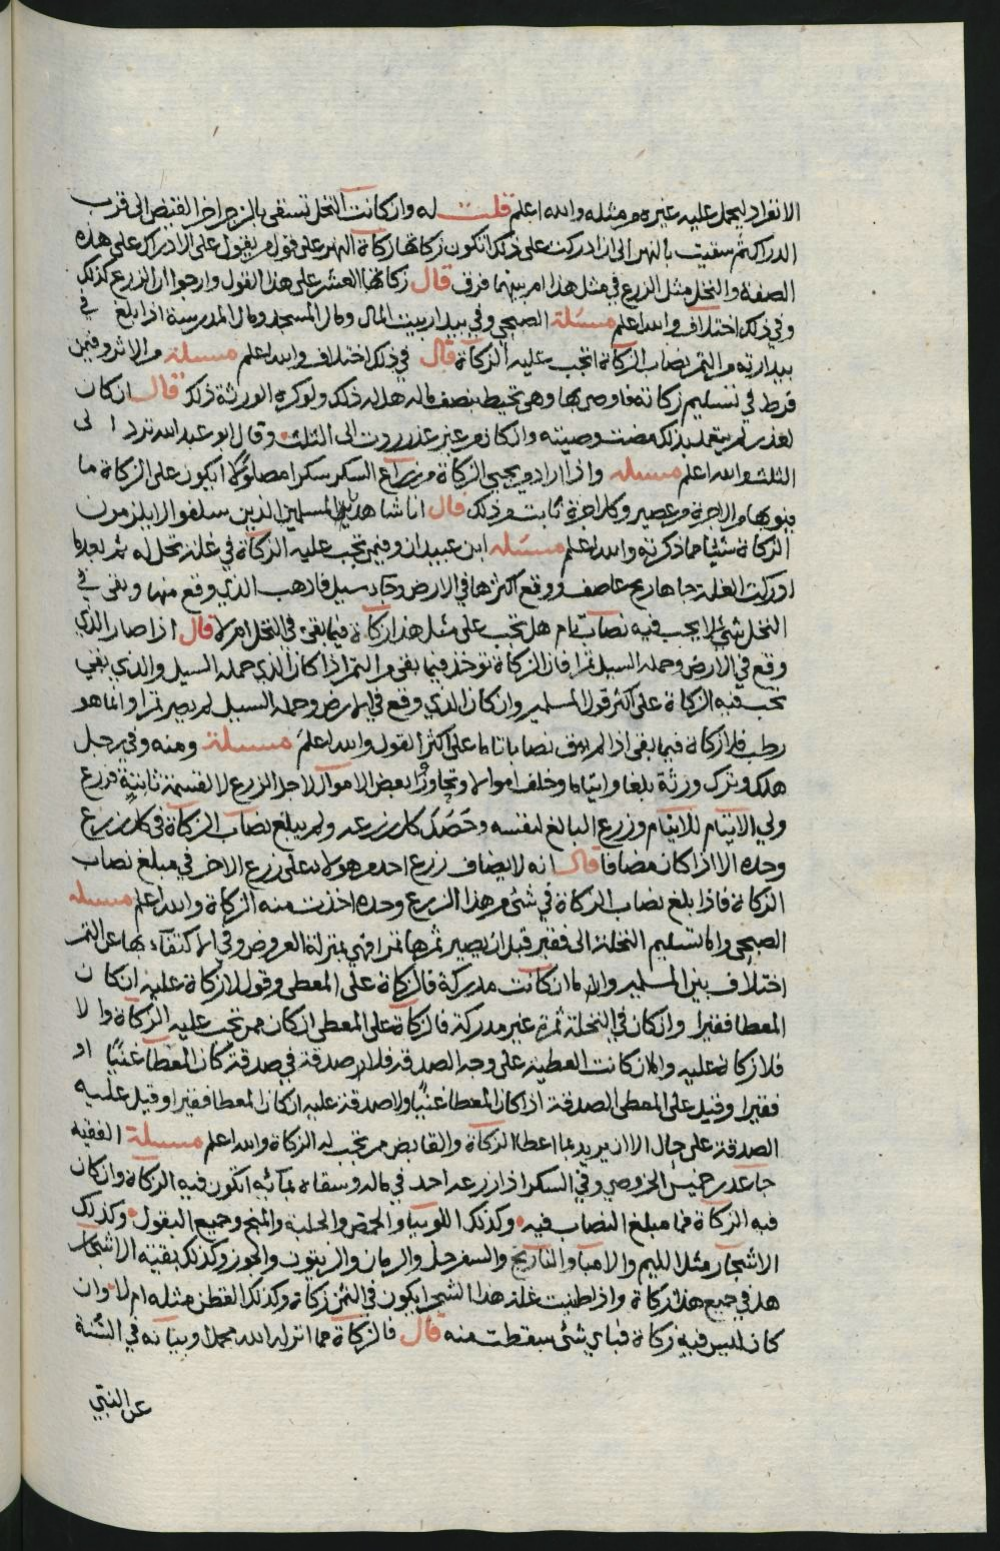 الانفراد ليحمل عليه غيره من مثله والله اعلم قلت له وان كانت النخل تسقى بالزجر اخر القيض الى قرب
الدراك ثم سقيت بالنهر الى ان ادركت على ذلك اتكون زكاتها زكاة النهر على قول من يقول على الادراك على هذه
الصفة والنخل مثل الزرع في مثل هذا ام بينهما فرق قال زكاتها العشر على هذا القول وارجوا ان الزرع كذلك
وفي ذلك اختلاف والله اعلم مسئلة الصبحي وفي بيدار بيت المال ومال المسجد ومال المدرسة اذا بلغ في
بيدارته من التمر نصاب الزكاة اتجب عليه الزكاة قال في ذلك اختلاف والله اعلم مسئلة من الاثر وفيمن
فرط في تسليم زكاته فاوصى بها وهي تحيط بنصف ماله هل له ذلك ولو كره الورثة ذلك قال ان كان
لعذر لم يتعمد بذلك مضت وصيته وان كان من غير عذر ردت الى الثلث وقال ابو عبد الله ترد الى
الثلث والله اعلم مسئله واذا اراد ويحيى الزكاة من زراع السكر سكرا مصلوكا ايكون على الزكاة ما
ينوبها من الاجرة من عصير وكل اجرة ثابت من ذلك قال انا شاهدنا المسلمين الذين سلفوا لا يلزمون
الزكاة شيئا مما ذكرته والله اعلم مسئله ابن عبيدان وفيمن تجب عليه الزكاة في غلة نخل له ثم بعدما
ادركت الغلة جاها ريح عاصف ووقع اكثرها في الارض وجاء سيل فاذهب الذي وقع منها وبقى في
النخل شئ لا يجب فيه نصاب تام هل تجب على مثل هذا زكاة فيما بقى في النخل ام لا قال اذا صار الذي
وقع في الارض وحمله السيل تمرا فان الزكاة توخذ فيما بقى من التمر اذا كان الذي حمله السيل والذي بقي
تجب فيه الزكاة على اكثر قول المسلمين وان كان الذي وقع في الارض وحمله السيل لم يصير تمرا وانما هو
رطب فلا زكاة فيما بقى اذا لم يبق نصابا تاما على اكثر القول والله اعلم مسئلة ومنه وفي رجل
هلك وترك ورثة بلغا وايتاما وخلف اموالا وتجاوزا بعض الاموال لاجل الزرع لا لقسمة ثابتة فزرع
ولي الايتام للايتام وزرع البالغ لنفسه وحصد كل زرعه ولم يبلغ نصاب الزكاة في كل زرع
وحده الا اذا كان مضافا قال انه لا يضاف زرع احد من هولاء على زرع الاخر في مبلغ نصاب
الزكاة فاذا بلغ نصاب الزكاة في شئ من هذا الزرع وحده اخذت منه الزكاة والله اعلم مسئله
الصبحي واما تسليم النخلة الى فقير قبل ان يصير ثمرها تمرا فهي بمنزلة العروض وفي الاكتفاء بها عن التمر
اختلاف بين المسلمين واما ان كانت مدركة فالزكاة على المعطي وقول لا زكاة عليه ان كان
المعطا فقيرا وان كان في النخلة ثمرة غير مدركة فالزكاة على المعطى ان كان ممن تجب عليه الزكاة والا
فلا زكاة عليه واما ان كانت العطية على وجه الصدقة فلا صدقة في صدقة كان المعطا غنيا او
فقيرا وقيل على المعطى الصدقة اذا كان المعطا غنيا ولا صدقة عليه ان كان المعطا فقيرا وقيل عليه
الصدقة على حال الا ان يريد بما اعطا الزكاة والقابض من تجب له الزكاة والله اعلم مسئلة الفقيه
جاعد بن خميس الخروصي وفي السكر اذا زرعه احد في ماله وسقاه بمآئه اتكون فيه الزكاة وان كان
فيه الزكاة فما مبلغ النصاب فيه وكذلك اللوبيا والحمص والحلبة والمنج وجميع البقول وكذلك
الاشجار مثل الليم والامبا والنارنج والسفرجل والرمان والزيتون والجوز وكذلك بقية الاشجار
هل في جميع هذا زكاة واذا طنيت غلة هذا الشجر ايكون في الثمن زكاة وكذلك القطن مثله ام لا وان
كان ليس فيه زكاة فباي شئ سقطت منه قال فالزكاة مما انزله الله مجملا وبيانه في السنة
عن النبي